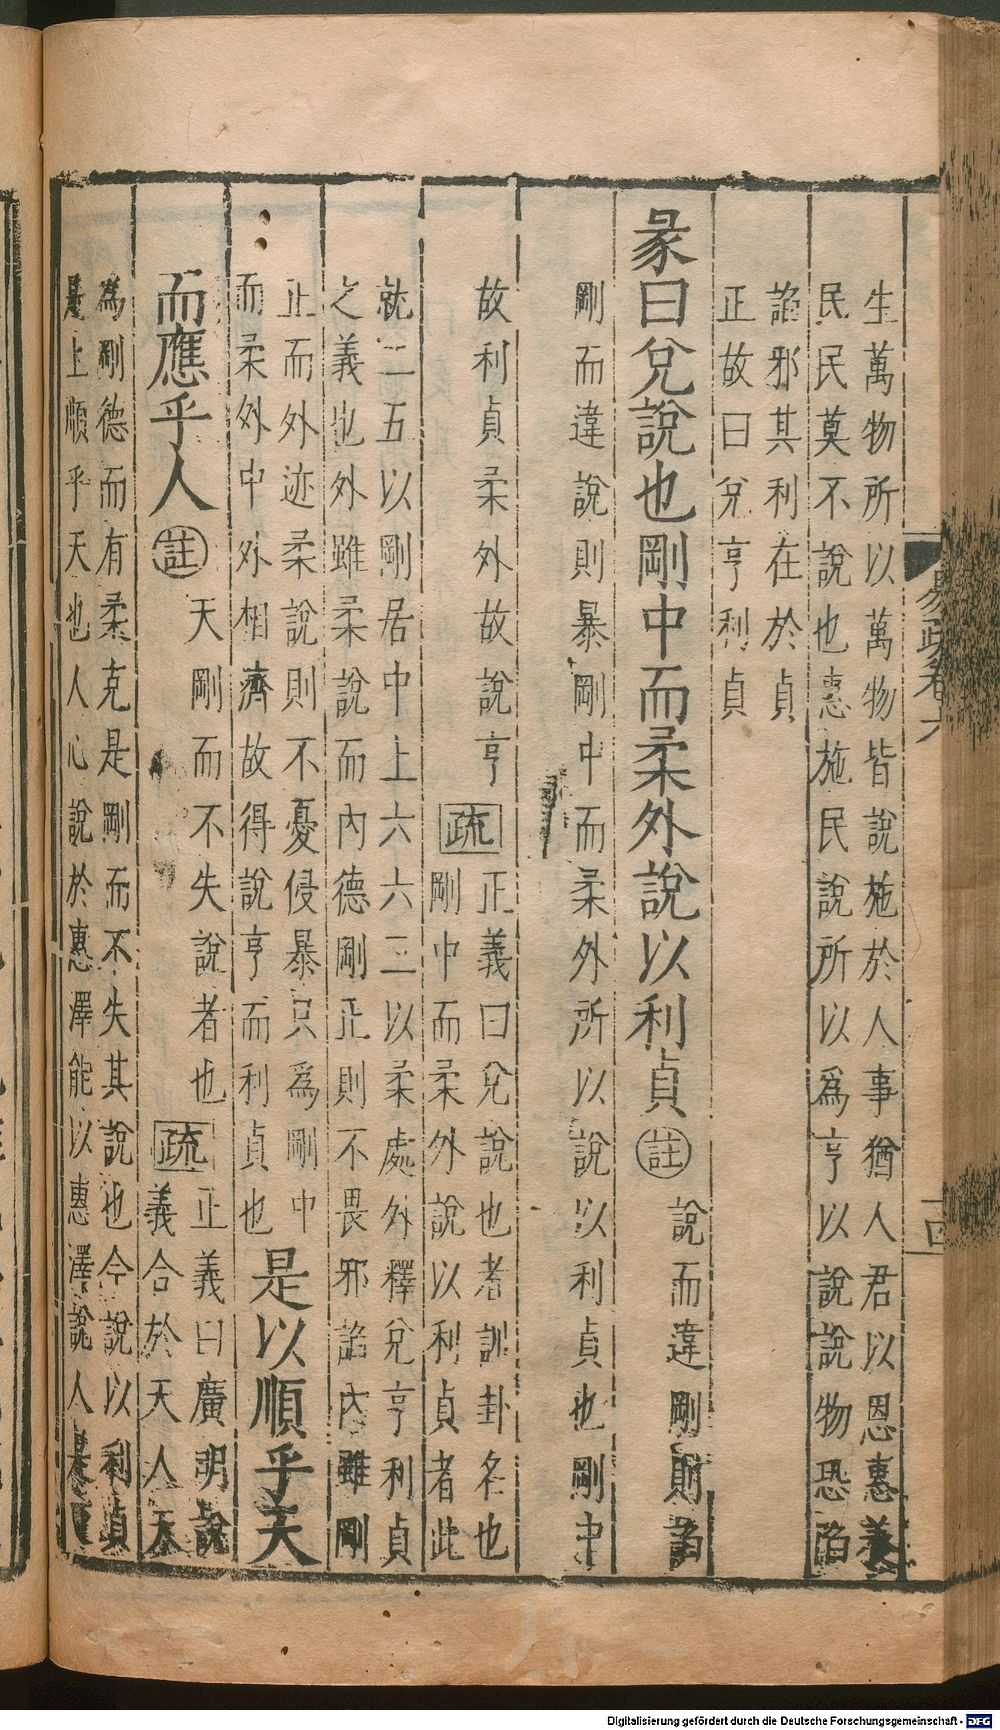 生萬物所以萬物皆說施於人事猶人君以恩惠養
民民莫不說也惠施民說所以為亨以說說物恐陷
諂邪其利在於貞
正故曰兌亨利貞
彖曰兌說也剛中而柔外說以利貞 註 說而違剛則諂
剛而違說則暴剛中而柔外所以說以利貞也剛中
故利貞柔外故說亨 疏 正義曰兌說也者訓卦名也
剛中而柔外說以利貞者此
就二五以剛居中上六六三以柔處外釋兌亨利貞
之義也外雖柔說而內德剛正則不畏邪諂內雖剛
正而外迹柔說則不憂侵暴只為剛中
而柔外中外相濟故得說亨而利貞也
是以順乎天
而應乎人 註 天剛而不失說者也 疏 正義曰廣明說
義合於天人天
為剛德而有柔克是剛而不失其說也今說以利貞
是上順乎天也人心說於惠澤能以惠澤說人
易疏卷六
十四
Digitalisierung gefördert durch die Deutsche Forschungsgemeinschaft - DFG